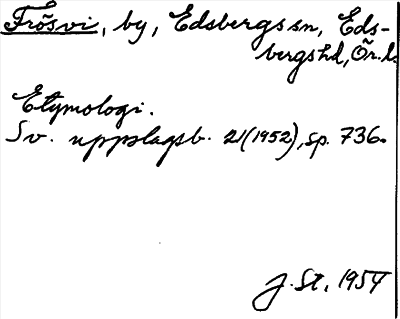 Frösvi, by, Edsbergs sn, Eds-
bergs hd, Ör. l.
Etymologi.
Sv. uppslagsb. 21(1952), sp. 736.
J. St. 1954